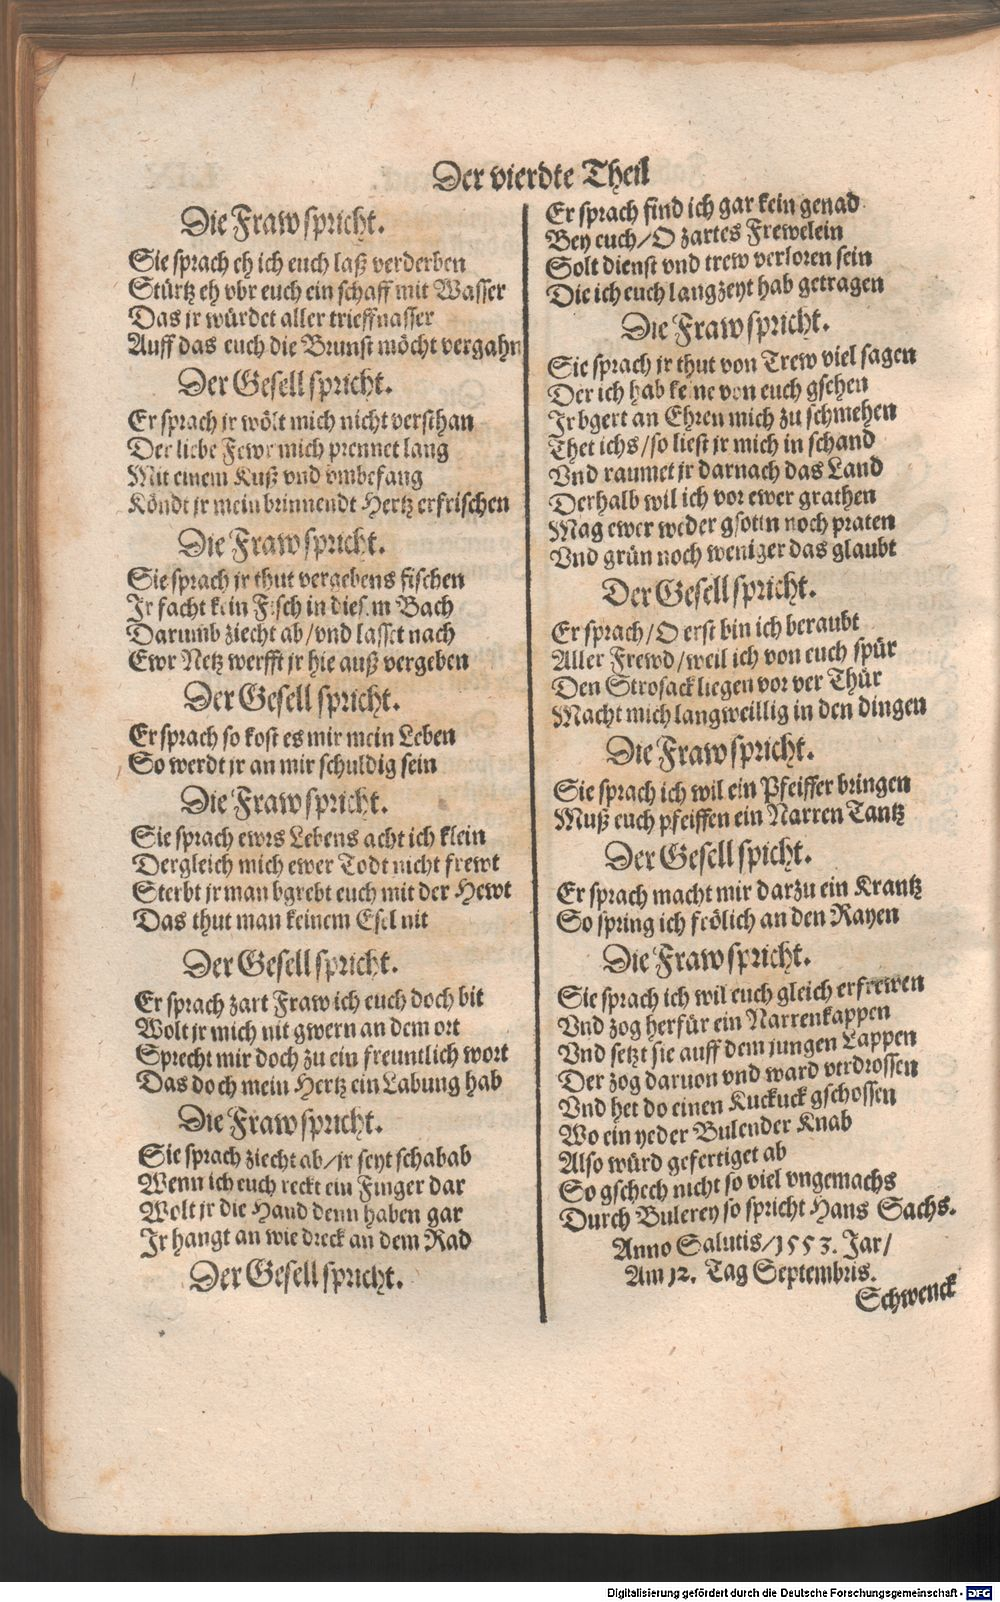 Der vierdte Theil
Die Fraw spricht.
Sie sprach eh ich euch laß verderben
Stürtz eh vbr euch ein schaff mit Wasser
Das jr würdet aller trieffnasser
Auff das euch die Brunst möcht vergahn
Der Gesell spricht.
Er sprach jr wölt mich nicht versthan
Der liebe Fewr mich prennet lang
Mit einem Kuß vnd vmbefang
Köndt jr mein brinnendt Hertz erfrischen
Die Fraw spricht.
Sie sprach jr thut vergebens fischen
Jr facht kein Fisch in diesem Bach
Darumb ziecht ab/vnd lasset nach
Ewr Netz werfft jr hie auß vergeben
Der Gesell spricht.
Er sprach so kost es mir mein Leben
So werdt jr an mir schuldig sein
Die Fraw spricht.
Sie sprach ewrs Lebens acht ich klein
Dergleich mich ewer Todt nicht frewt
Sterbt jr man bgrebt euch mit der Hewt
Das thut man keinem Esel nit
Der Gesell spricht.
Er sprach zart Fraw ich euch doch bit
Wolt jr mich nit gwern an dem ort
Sprecht mir doch zu ein freuntlich wort
Das doch mein Hertz ein Labung hab
Die Fraw spricht.
Sie sprach ziecht ab/jr seyt schabab
Wenn ich euch reckt ein Finger dar
Wolt jr die Hand denn haben gar
Jr hangt an wie dreck an dem Rad
Der Gesell spricht.
Er sprach find ich gar kein genad
Bey euch/O zartes Frewelein
Solt dienst vnd trew verloren sein
Die ich euch langzeyt hab getragen
Die Fraw spricht.
Sie sprach jr thut von Trew viel sagen
Der ich hab keine von euch gsehen
Jr bgert an Ehren mich zu schmehen
Thet ichs/so liest jr mich in schand
Vnd raumet jr darnach das Land
Derhalb wil ich vor ewer grathen
Mag ewer weder gsotin noch praten
Vnd grün noch weniger das glaubt
Der Gesell spricht.
Er sprach/O erst bin ich beraubt
Aller Frewd/weil ich von euch spür
Den Strosack liegen vor ver Thür
Macht mich langweillig in den dingen
Die Fraw spricht.
Sie sprach ich wil ein Pfeiffer bringen
Muß euch pfeiffen ein Narren Tantz
Der Gesell spicht.
Er sprach macht mir darzu ein Krantz
So spring ich frölich an den Rayen
Die Fraw spricht.
Sie sprach ich wil euch gleich erfrewen
Vnd zog herfür ein Narrenkappen
Vnd setzt sie auff dem jungen Lappen
Der zog daruon vnd ward verdrossen
Vnd het do einen Kuckuck gschossen
Wo ein yeder Bulender Knab
Also würd gefertiget ab
So gschech nicht so viel vngemachs
Durch Bulerey so spricht Hans Sachs.
Anno Salutis/1553. Jar/
Am 12. Tag Septembris.
Schwenck
Digitalisierung gefördert durch die Deutsche Forschungsgemeinschaft - DFG